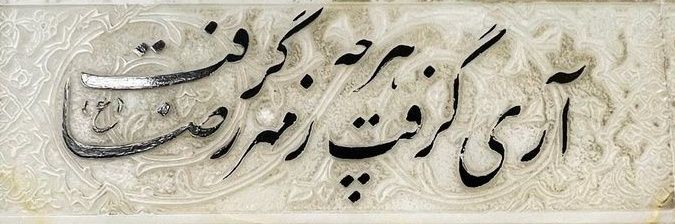 آری گرفت هرچه ز مهر رضا (ع) گرفت